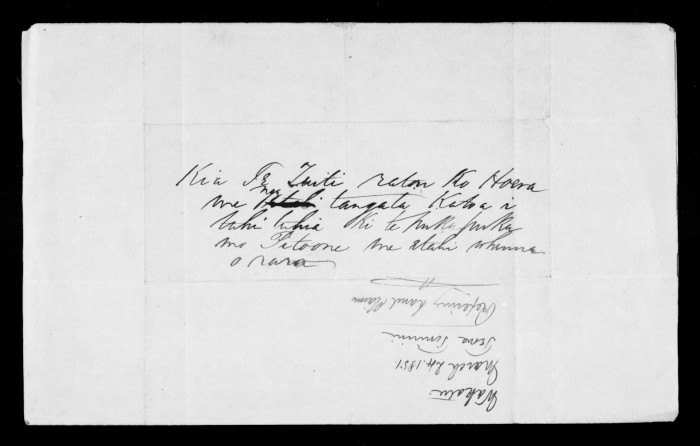 Kia Te Tuiti ratou Ko Hoera
me nga tangata Katoa i
tuhi tuhia Ki te pukapuka
mo Pitoone me etahi whenua
o rara
Wakatu
March 24. 1851.
Refering Land Claim